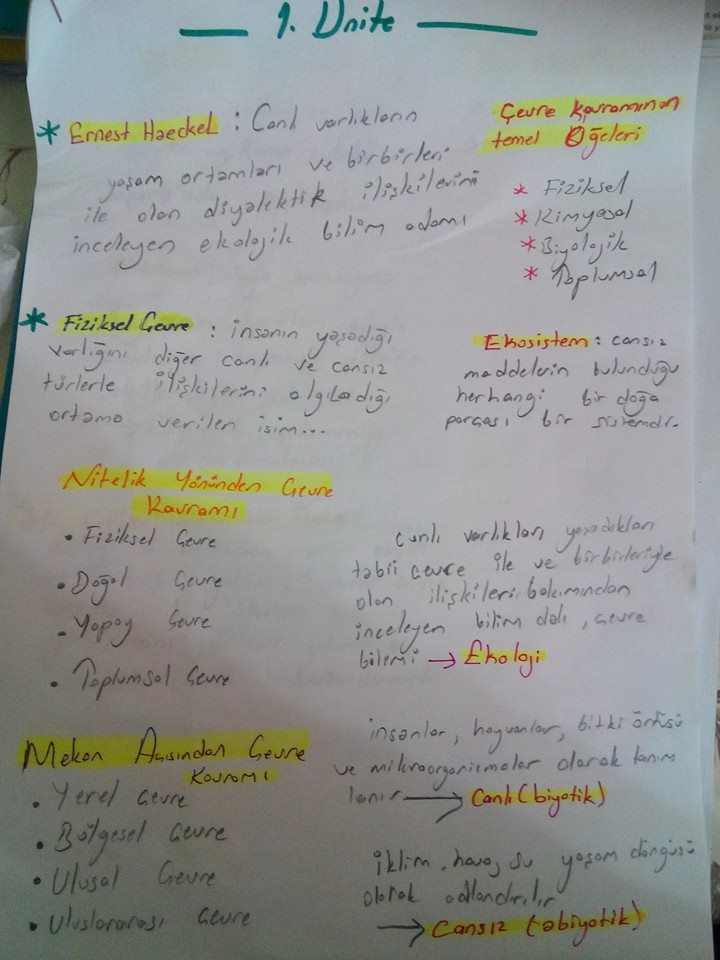 1. Ünite
* Ernest Haeckel : Canlı varlıkların
yaşam ortamları ve birbirleri
ile olan diyalektik ilişkilerini
inceleyen ekolojik bilim adamı
Çevre kavramının
temel Öğeleri
* Fiziksel
* Kimyasal
* Biyolojik
* Toplumsal
* Fiziksel Çevre : insanın yaşadığı
varlığını diğer canlı ve cansız
türlerle ilişkilerini algıladığı
ortama verilen isim...
Ekosistem : cansız
maddelerin bulunduğu
herhangi bir doğa
parçası bir sistemdir.
Nitelik Yönünden Çevre
Kavramı
• Fiziksel Çevre
• Doğal Çevre
• Yapay Çevre
• Toplumsal Çevre
canlı varlıkları yaşadıkları
tabii çevre ile ve birbirleriyle
olan ilişkileri bakımından
inceleyen bilim dalı, çevre
bilemi → Ekoloji
Mekan Açısından Çevre
Kavramı
• Yerel Çevre
• Bölgesel Çevre
• Ulusal Çevre
• Uluslararası Çevre
insanlar, hayvanlar, bitki örtüsü
ve mikroorganizmalar olarak tanım
lanır → Canlı (biyotik)
iklim, hava, su yaşam döngüsü
olarak adlandırılır
→ Cansız (abiyotik)